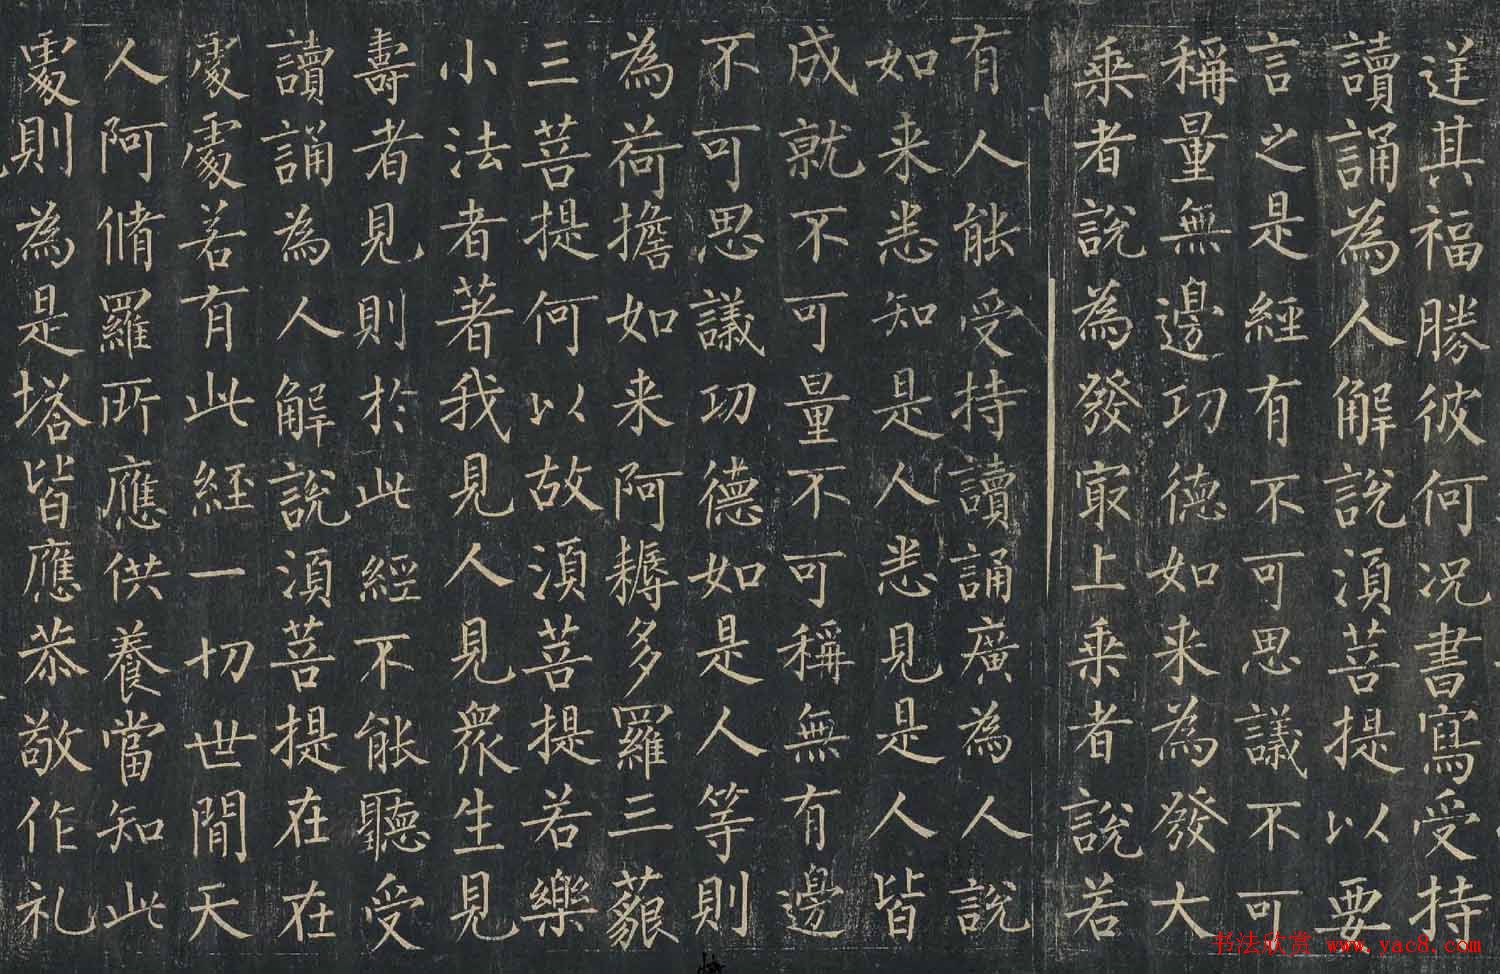 逆其福勝彼何況書寫受持
讀誦為人解說須菩提以要
言之是經有不可思議不可
稱量無邊功德如来為發大
乗者說為發冣上乗者說若
有人能受持讀誦廣為人說
如来悉知是人悉見是人皆
成就不可量不可稱無有邊
不可思議功德如是人等則
為荷擔如来阿耨多羅三藐
三菩提何以故須菩提若樂
小法者著我見人見眾生見
壽者見則於此經不能聽受
讀誦為人解說須菩提在在
處處若有此經一切世間天
人阿脩羅所應供養當知此
處則為是塔皆應恭敬作礼
书法欣赏 www.yac8.com